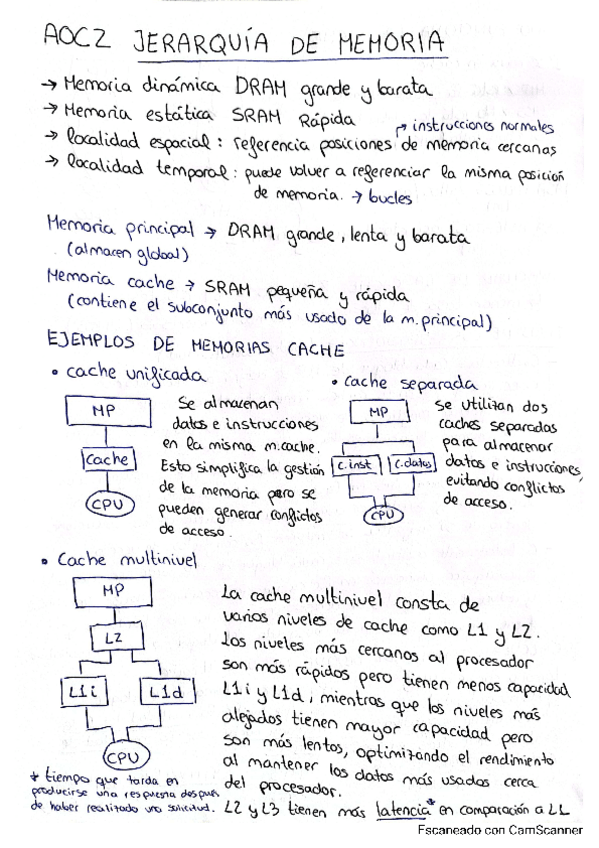 AOC2 JERARQUÍA DE MEMORIA
→ Memoria dinámica DRAM grande y barata
→ Memoria estática SRAM Rápida
→ instrucciones normales
→ localidad espacial: referencia posiciones de memoria cercanas
→ localidad temporal: puede volver a referenciar la misma posición
de memoria. → bucles
Memoria principal → DRAM grande, lenta y barata
(almacen global)
Memoria cache → SRAM pequeña y rápida
(contiene el subconjunto más usado de la m.principal)
EJEMPLOS DE MEMORIAS CACHE
• cache unificada
MP
cache
CPU
Se almacenan
datos e instrucciones
en la misma m.cache.
Esto simplifica la gestión
de la memoria pero se
pueden generar conflictos
de acceso.
• cache separada
MP
c.inst
c.datos
CPU
se utilizan dos
caches separadas
para almacenar
datos e instrucciones,
evitando conflictos
de acceso.
• Cache multinivel
MP
L2
L1i
L1d
CPU
La cache multinivel consta de
varios niveles de cache como L1 y L2.
Los niveles más cercanos al procesador
son más rápidos pero tienen menos capacidad
L1i y L1d, mientras que los niveles más
alejados tienen mayor capacidad pero
son más lentos, optimizando el rendimiento
al mantener los datos más usados cerca
del procesador.
L2 y L3 tienen más latencia* en comparación a L1
* tiempo que tarda en
producirse una respuesta después
de haber realizado una solicitud.
Escaneado con CamScanner